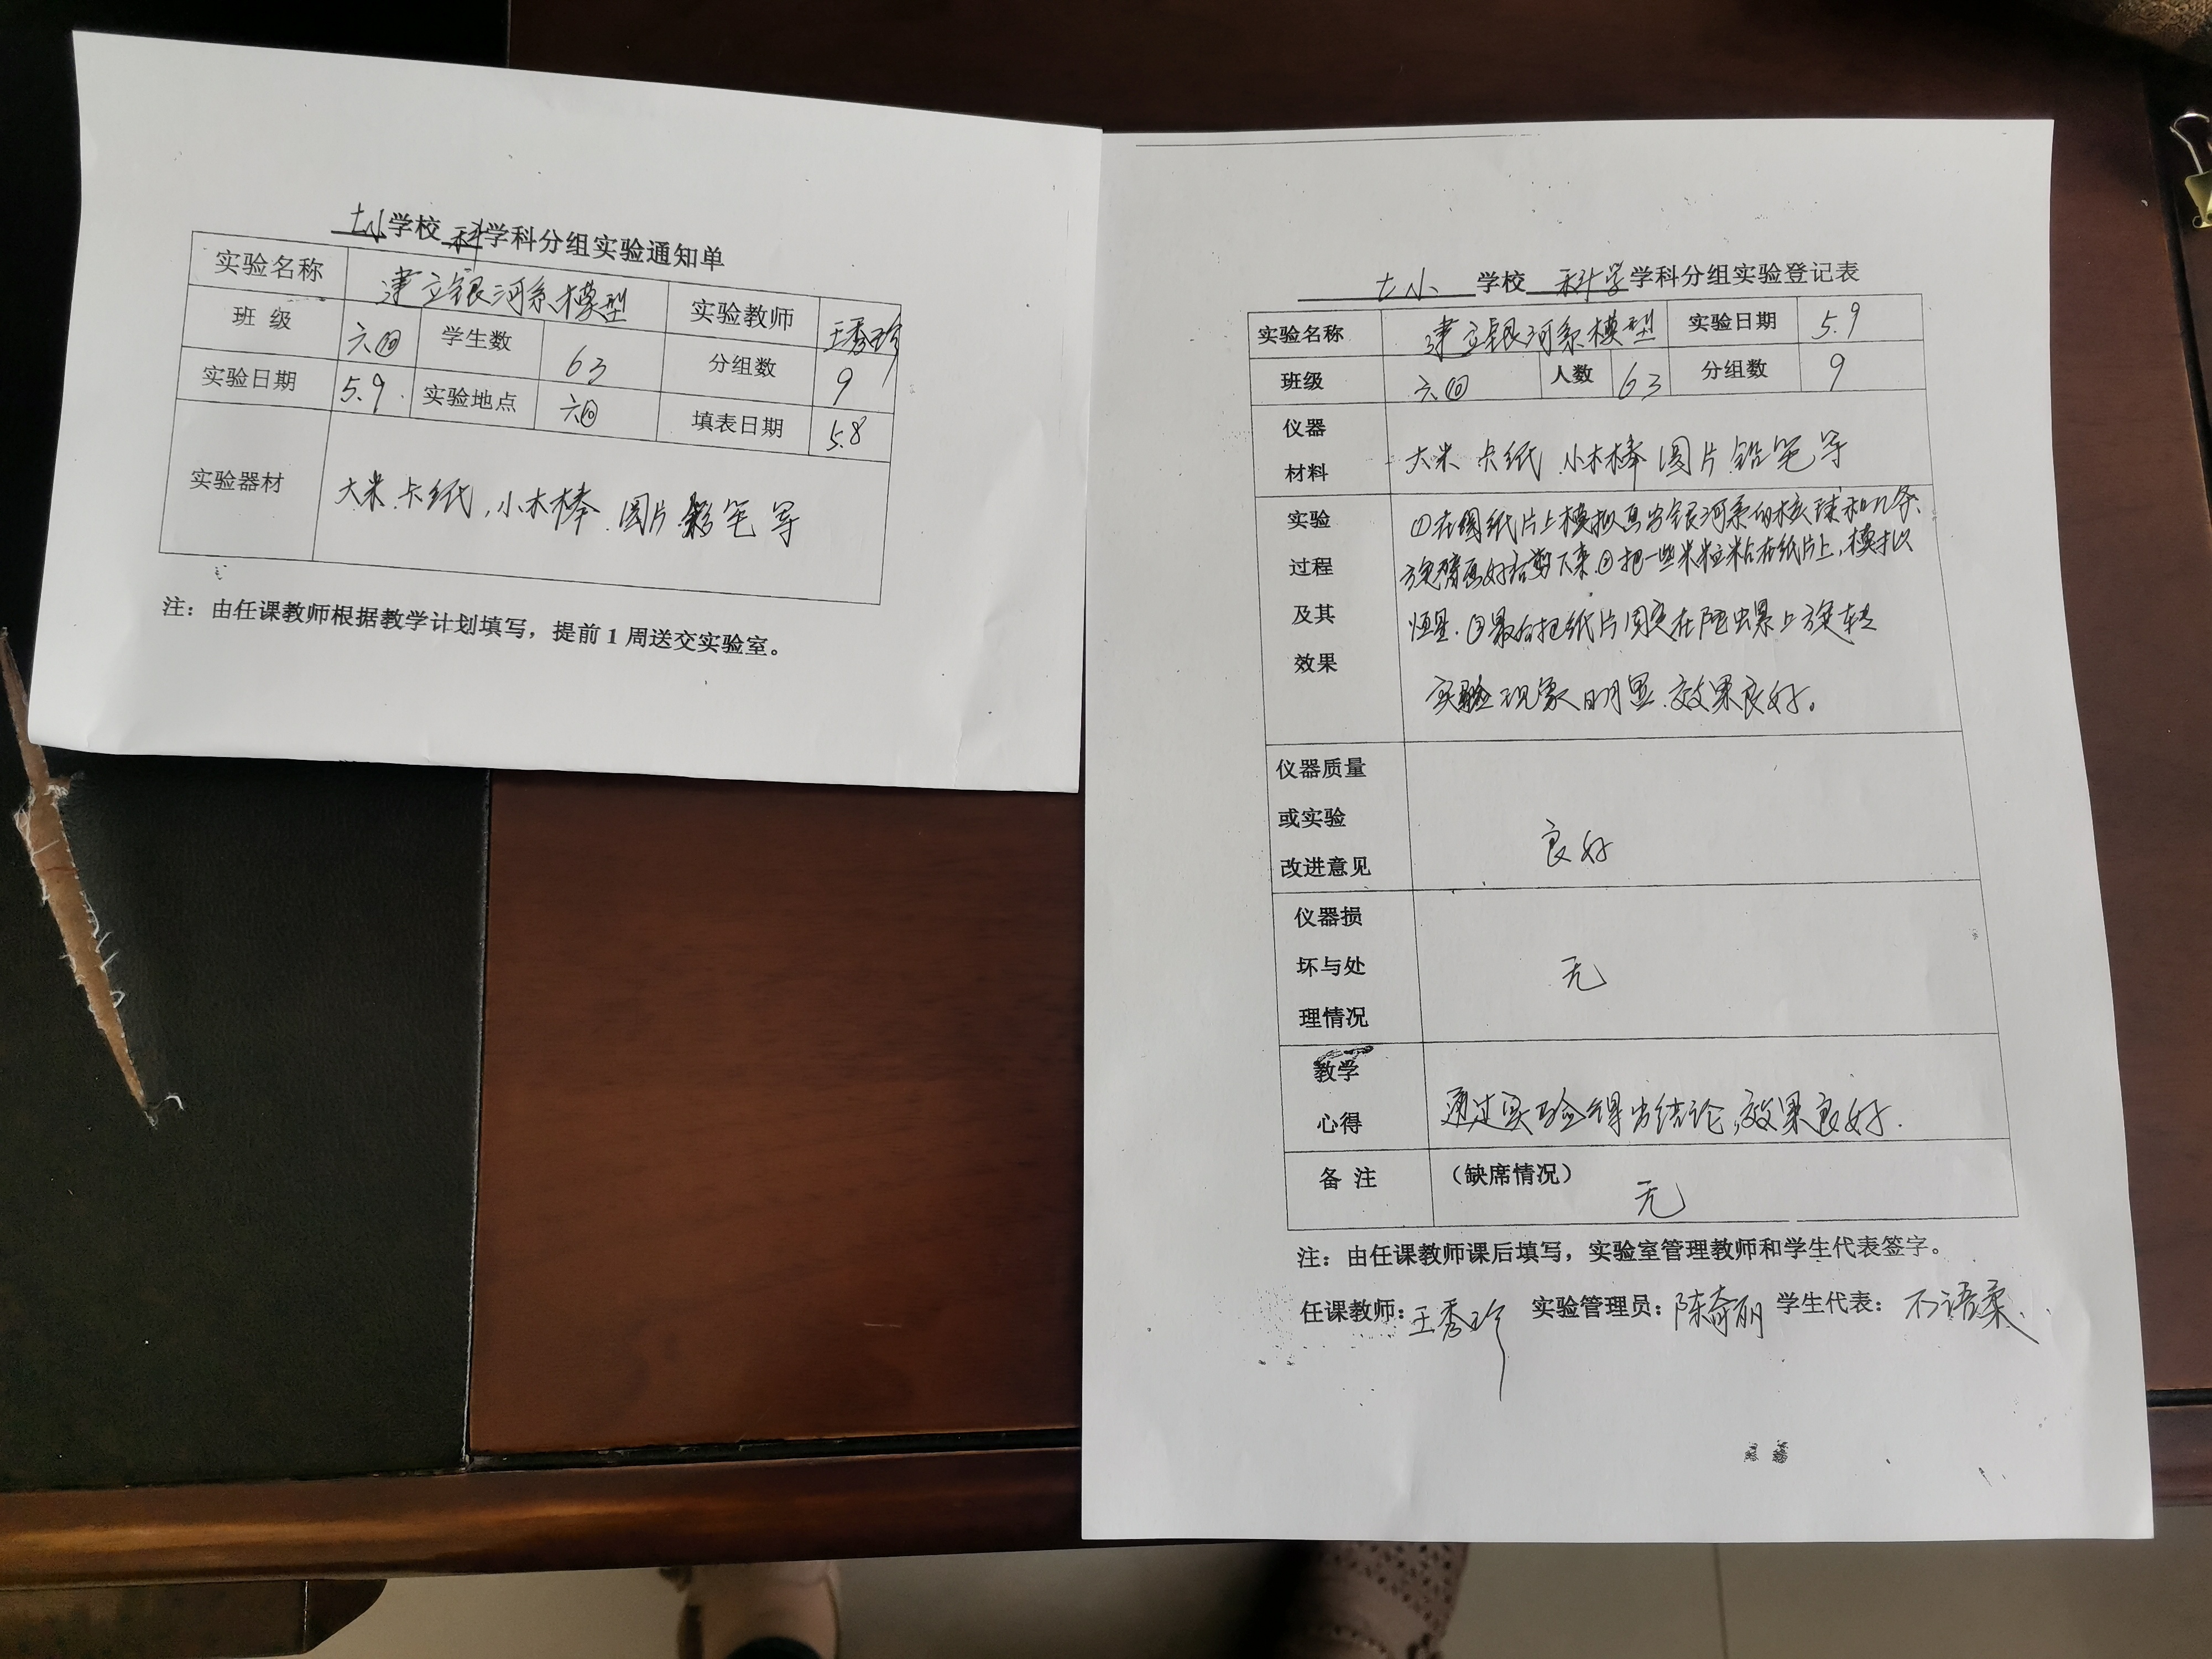 七小学校 科学科分组实验通知单
实验名称 建立银河系模型 实验教师 王秀珍
班 级 六⑩ 学生数 63 分组数 9
实验日期 5.9. 实验地点 六⑩ 填表日期 5.8
实验器材 大米 卡纸, 小木棒. 圆片 彩笔 等
注：由任课教师根据教学计划填写，提前 1 周送交实验室。
七小 学校 科学学科分组实验登记表
实验名称 建立银河系模型 实验日期 5.9
班级 六⑩ 人数 63 分组数 9
仪器
材料
大米 卡纸 小木棒 圆片 铅笔 等
实验
过程
及其
效果
①在圆纸片上模拟画出银河系的核球和几条
旋臂画好后剪下来②把一些米粒粘在纸片上,模拟
恒星.③最后把纸片固定在陀螺上旋转
实验现象明显.效果良好。
仪器质量
或实验
改进意见
良好
仪器损
坏与处
理情况
无
教学
心得
通过实验得出结论,效果良好.
备 注 （缺席情况）
无
注：由任课教师课后填写，实验室管理教师和学生代表签字。
任课教师：王秀珍 实验管理员：陈奇丽 学生代表： 语柔